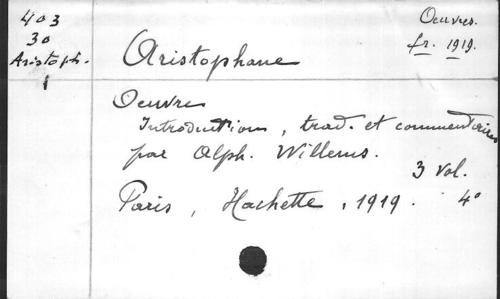 403
30
Aristoph.
1
Oeuvres.
fr. 1919.
Aristophane
Oeuvres
Introduction, trad. et commentaires
par Alph. Willems.
3 vol.
Paris, Hachette, 1919. 4°